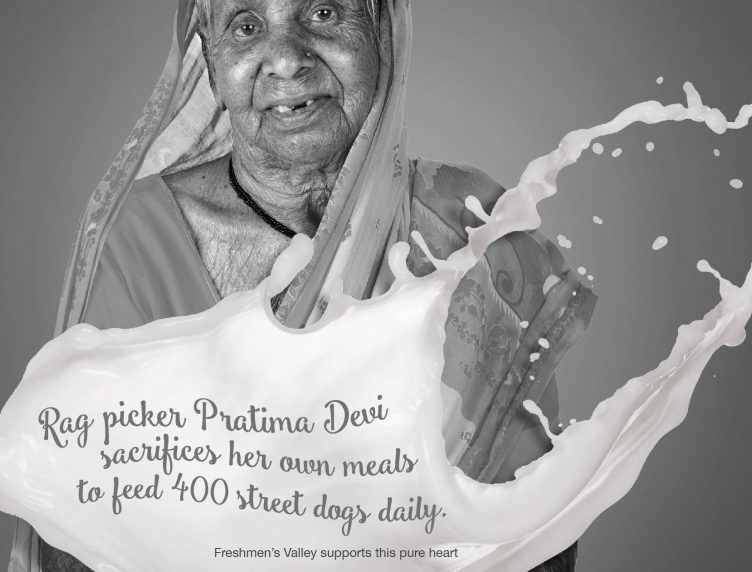 Rag picker Pratima Devi
sacrifices her own meals
to feed 400 street dogs daily.
Freshmen's Valley supports this pure heart